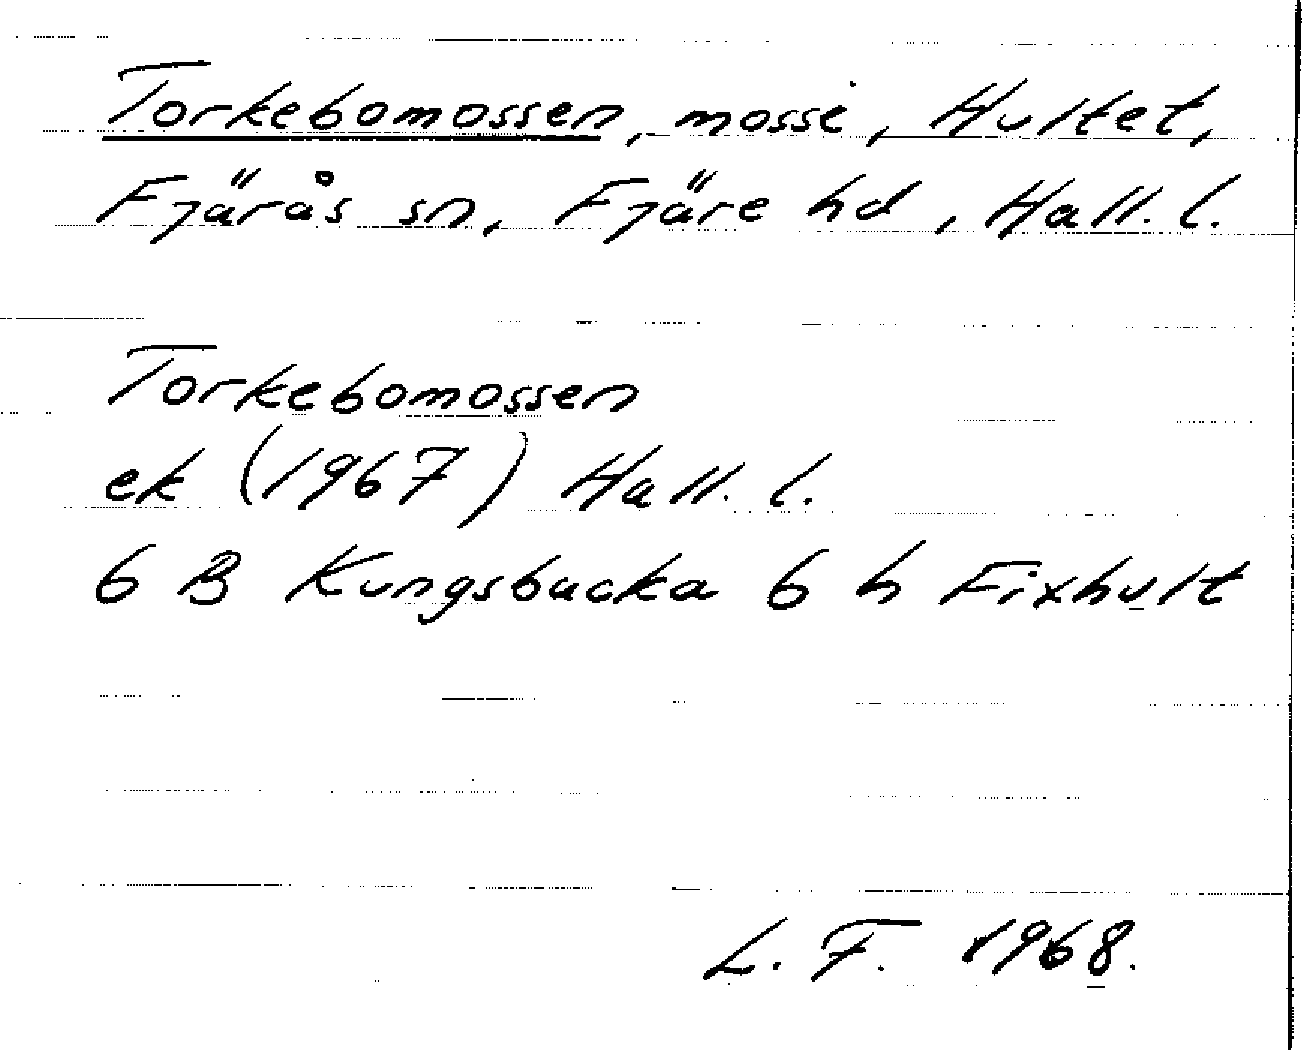 Torkebomossen, mosse, Hultet,
Fjärås sn, Fjäre hd, Hall. l.
Torkebomossen
ek (1967) Hall. l.
6 B Kungsbacka 6 h Fixhult
L. F. 1968.